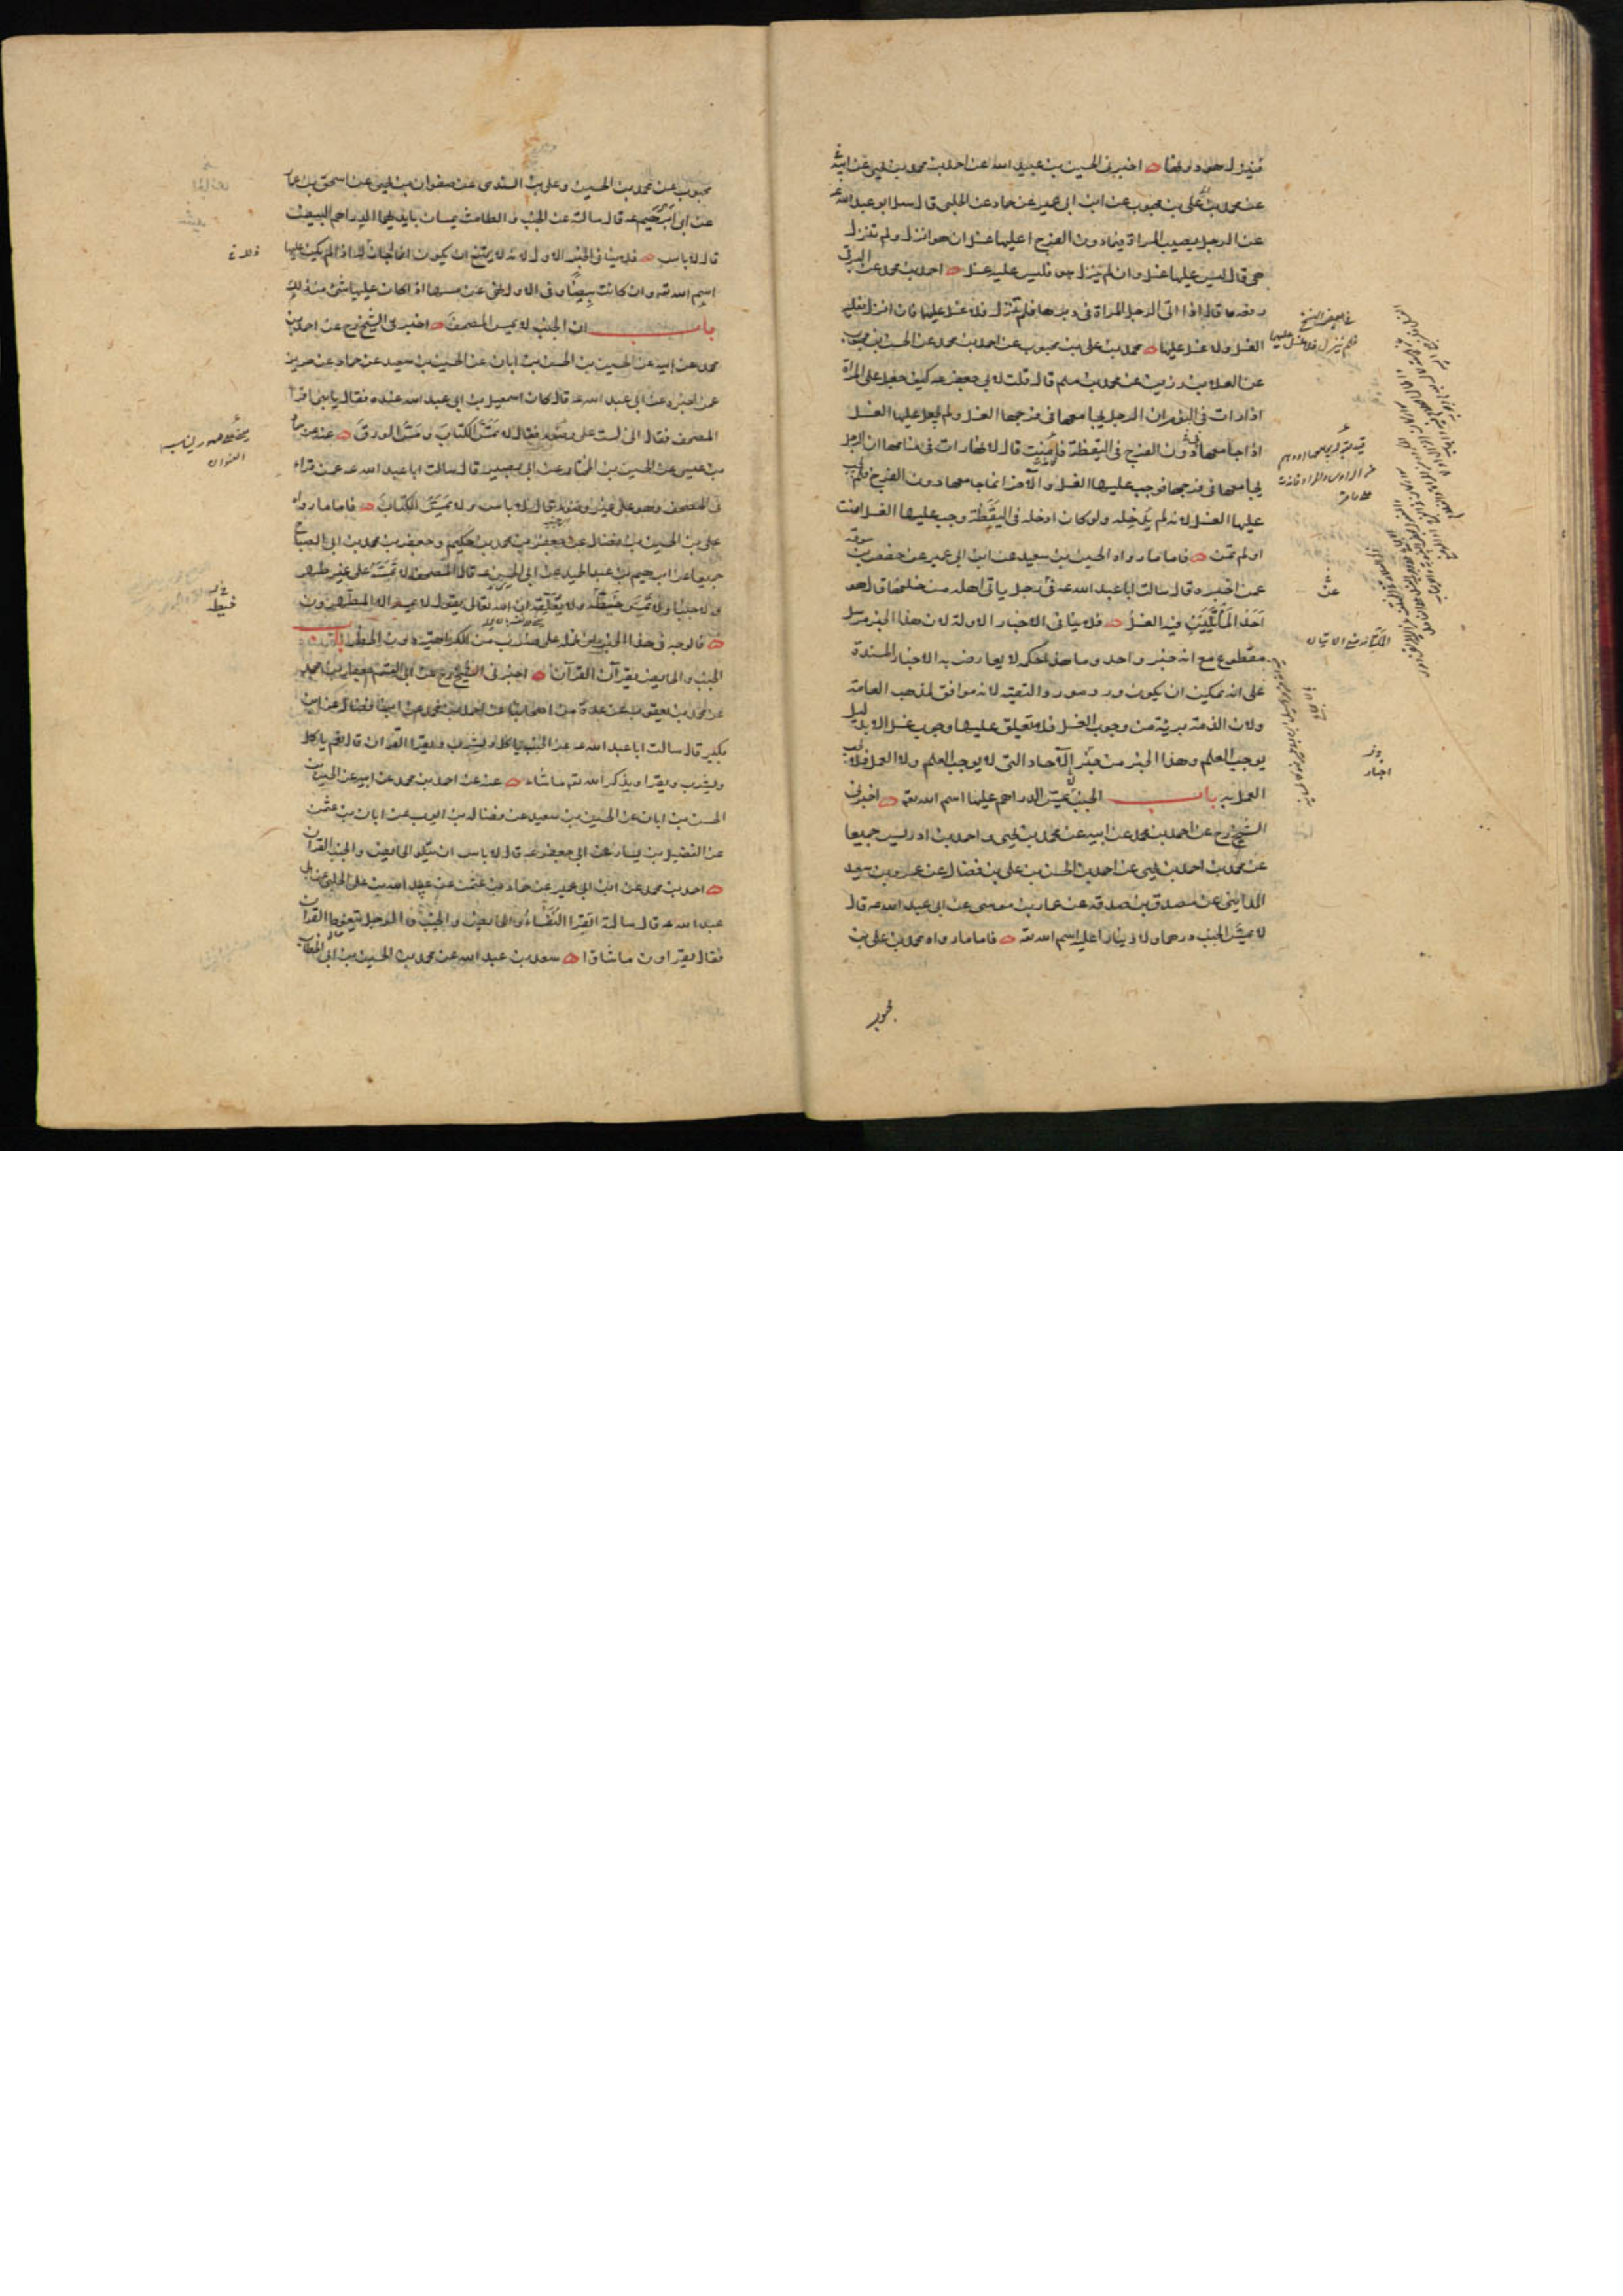 ينزل هو ولا هنا اخبرنى الحسين بن عبيد الله عن احمد بن محمد بن يحيى عن ابيه
عن محمد بن على بن محبوب عن ابن ابى عمير عن حماد عن الحلبى قال سئل ابو عبد الله ع
عن الرجل يصيب المراة فيما دون الفرج اعليها غسل ان هو انزل ولم تنزل
هى قال ليس عليها غسل وان لم ينزل هو فليس عليه غسل احمد بن محمد عن البرقى
رفعه قال اذا اتى الرجل المراة فى دبرها فلم تنزل فلا غسل عليها فان انزل فعليه
الغسل ولا غسل عليها محمد بن على بن محبوب عن احمد بن محمد عن الحسن بن محبوب
عن العلا بن رزين عن محمد بن مسلم قال قلت لابى جعفر عه كيف جعل على المراة
اذا رات فى النوم ان الرجل يجامعها فى فرجها الغسل ولم يجعل عليها الغسل
اذا جامعها دون الفرج فى اليقظة فامنت قال لانها رات فى منامها ان الرجل
يجامعها فى فرجها فوجب عليها الغسل والآخر انما جامعها دون الفرج فلم يجب
عليها الغسل لانه لم يدخله ولو كان ادخله فى اليقظة وجب عليها الغسل امنت
او لم تمن فاما ما رواه الحسين بن سعيد عن ابن ابى عمير عن حفص بن سوقه
عمن اخبره قال سالت ابا عبد الله عه فى رجل ياتى اهله من خلفها قال هو
احد الماتيين فيه الغسل فلا ينافى الاخبار الاولة لان هذا الخبر مرسل
مقطوع مع انه خبر واحد وما هذا حكمه لا يعارض به الاخبار المسندة
على انه يمكن ان يكون ورد مورد التقيه لانه موافق لمذهب العامة
ولان الذمة بريئة من وجوب الغسل فلا يتعلق عليها وجوب غسل الا بدليل
يوجب العلم وهذا الخبر من خبر الآحاد التى لا يوجب العلم ولا العمل فلا يجب
العمل به باب الجنب لا يمس الدراهم عليها اسم الله تعه اخبرنى
الشيخ رح عن احمد بن محمد عن ابيه عن محمد بن يحيى و احمد بن ادريس جميعا
عن محمد بن احمد بن يحيى عن احمد بن الحسن بن على بن فضال عن عمرو بن سعيد
المداينى عن مصدق بن صدقه عن عمار بن موسى عن ابى عبد الله عه قال
لا يمس الجنب درهما ولا دينارا عليه اسم الله تعه فاما ما رواه محمد بن على بن
محبوب
فى بعض النسخ
فلم ينزل فلا غسل عليها
عن
محبوب عن محمد بن الحسين وعلى بن السندى عن صفوان بن يحيى عن اسحق بن عمار
عن ابى ابرهيم عه قال سالته عن الجنب والطامث يمسان بايديهما الدراهم البيض
قال لا باس فلا ينافى الخبر الاول لانه لا يمتنع ان يكون انما اجاز له اذا لم يكن عليها
اسم الله تعه وان كانت بيضا وفى الاول نهى عن مسها اذا كان عليها شئ من ذلك
باب ان الجنب لا يمس المصحف اخبرنى الشيخ رح عن احمد بن
محمد عن ابيه عن الحسين بن الحسن بن ابان عن الحسين بن سعيد عن حماد عن حريز
عمن اخبره عن ابى عبد الله عه قال كان اسمعيل بن ابى عبد الله عنده فقال يا بنى اقرأ
المصحف فقال انى لست على وضوء فقال لا تمس الكتاب ومس الورق
بن عيسى عن الحسين بن المختار عن ابى بصير قال سالت ابا عبد الله عه عمن قراء
فى المصحف وهو على غير وضوء قال لا باس ولا يمس الكتاب فاما ما رواه
على بن الحسن بن فضال عن جعفر بن محمد بن حكيم وجعفر بن محمد بن ابى الصباح
جميعا عن ابرهيم بن عبد الحميد عن ابى الحسن عه قال المصحف لا تمسه على غير طهر
ولا جنبا ولا تمس خيطه ولا تعلقه ان الله تعالى يقول لا يمسه الا المطهرون
فالوجه فى هذا الخبر ان نحمله على ضرب من الكراهية دون الحظر باب
الجنب والحايض يقرآن القرآن اخبرنى الشيخ رح عن ابى القسم جعفر بن محمد
عن محمد بن يعقوب عن عدة من اصحابنا عن احمد بن محمد عن ابن فضال عن ابن
بكير قال سالت ابا عبد الله عه عن الجنب ياكل ويشرب ويقرا القران قال نعم ياكل
ويشرب ويقرا ويذكر الله تعه ما شاء عنه عن احمد بن محمد عن ابيه عن الحسين بن
الحسن بن ابان عن الحسين بن سعيد عن فضالة بن ايوب عن ابان بن عثمن
عن الفضيل بن يسار عن ابى جعفر عه قال لا باس ان يتلو الحايض والجنب القرآن
احمد بن محمد عن ابن ابى عمير عن حماد بن عثمن عن عبيد الله بن على الحلبى عن ابى
عبد الله عه قال سالته اتقرا النفساء والحايض والجنب والرجل يتغوط القرآن
فقال يقراون ما شاؤا سعد بن عبد الله عن محمد بن الحسين بن ابى الخطاب
خيطه